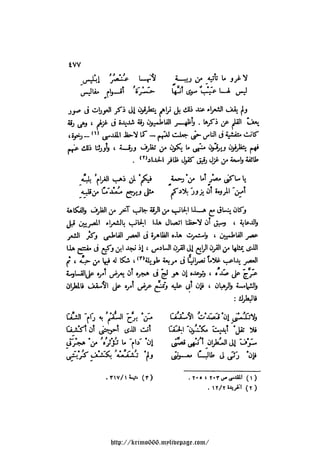 ٤٧٧
لا غرو ما تأتيه من ريبة لأنها عنصر إبليس
ليس لها عيب سوى أنها حسرة أقوام مفاليس
ولم يقف الشعراء عند ذلك بل تراهم يتطرقون إلى ذكر العورات فى صور
يعف القلم عن ذكرها . وأظهر الفاطميون رقة شديدة فى غزلهم ، وهى رقة
كانت متفشية فى الناس حتى جعلت لغتهم – كما لاحظ المقدسى (١) – رخوة ،
فهم يتظرفون ويرقون منتهى ما يكون من تظرف ورقة ، وأورثنا ذلك عنهم
طائفة واسعة من غزل رقيق كقول ظافر الحداد (٢) .
يا ساكنى مصر أما من رحمة فيكم لمن ذهب الغرام بلبه
أمن المروءة أن يزور بلادكم مثلى ويرجع معدما من قلبه
وكان ينساق مع هذا الجانب من الرقة جانب آخر من الظرف والفكاهة
والدعابة ، وسبق أن لاحظنا اتصال هذا الجانب بالشعراء المصريين قبل
عصر الفاطميين ، واستمرت هذه الظاهرة فى العصر الفاطمى وكثر الشعر
الذى يمثلها من القرن الرابع إلى القرن السادس ، إذ نجد ابن وكيع فى مفتتح هذا
العصر يداعب غلاماً نصرانياً فى مربعة طويلة (٣) ، شكا له فيها من حبه ، ثم
عرج على صده ، وتوعده إن هو لج فى هجره أن يعرض أمره على القساوسة
والشمامسة والرهبان ، فإن أبى عليه وتمنع عرض أمره على الأسقف فالمطران
فالبطرك :
ولا تلمنى إن قصدت الأسقفا من برح السقم به رام الشفا
فلا تقل أبديت مكنون الخفا أنت الذى أحوجتنى أن أكشفا
سوف إلى المطران أنهى قصتى إن دام ما تؤثره من هجرتى
فإن رثى لى طالباً معونتى ولم تشفعه بكشف كربتى
(١) المقدسى ص ٢٠٣ ، ٢٠٥ .
(٢) الخريدة ١٢/٢ .
(٣) اليتيمة ٣١٧/١ .
http://krimo666.mylivepage.com/